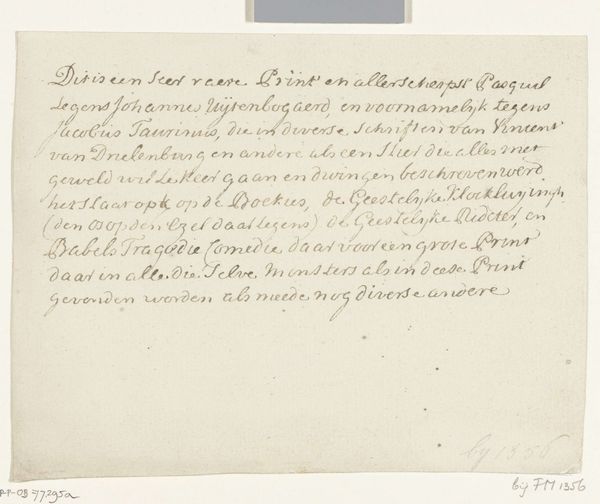 Dit is een seer raere Print en allerscherpst Pasquil
tegens Johannes Uijtenbogaerd, en voornamelijk tegens
Jacobus Taurinus, die in diverse schriften van Vincent
van Drielenburg en andere als een Stier die alles met
geweld wil te keer gaan en dwingen beschreven werd.
het slaat op de Boekies, de Geestelijke Klockluyingh
(den os op den Ezel daar tegens) de Geestelijke Ridder, en
Babels Tragoedie Comedie daar voor een grote Print
daar in alle die selve monsters als in deese Print
gevonden worden als meede nog diverse andere
by 1356
RP-P-OB-77.295a
bij FM 1356